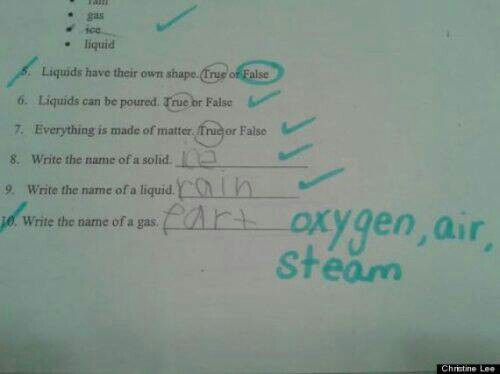 rain
• gas
• ice
• liquid
5. Liquids have their own shape. True or False
6. Liquids can be poured. True or False
7. Everything is made of matter. True or False
8. Write the name of a solid. ice
9. Write the name of a liquid. rain
10. Write the name of a gas. Fart oxygen, air,
steam
Christine Lee